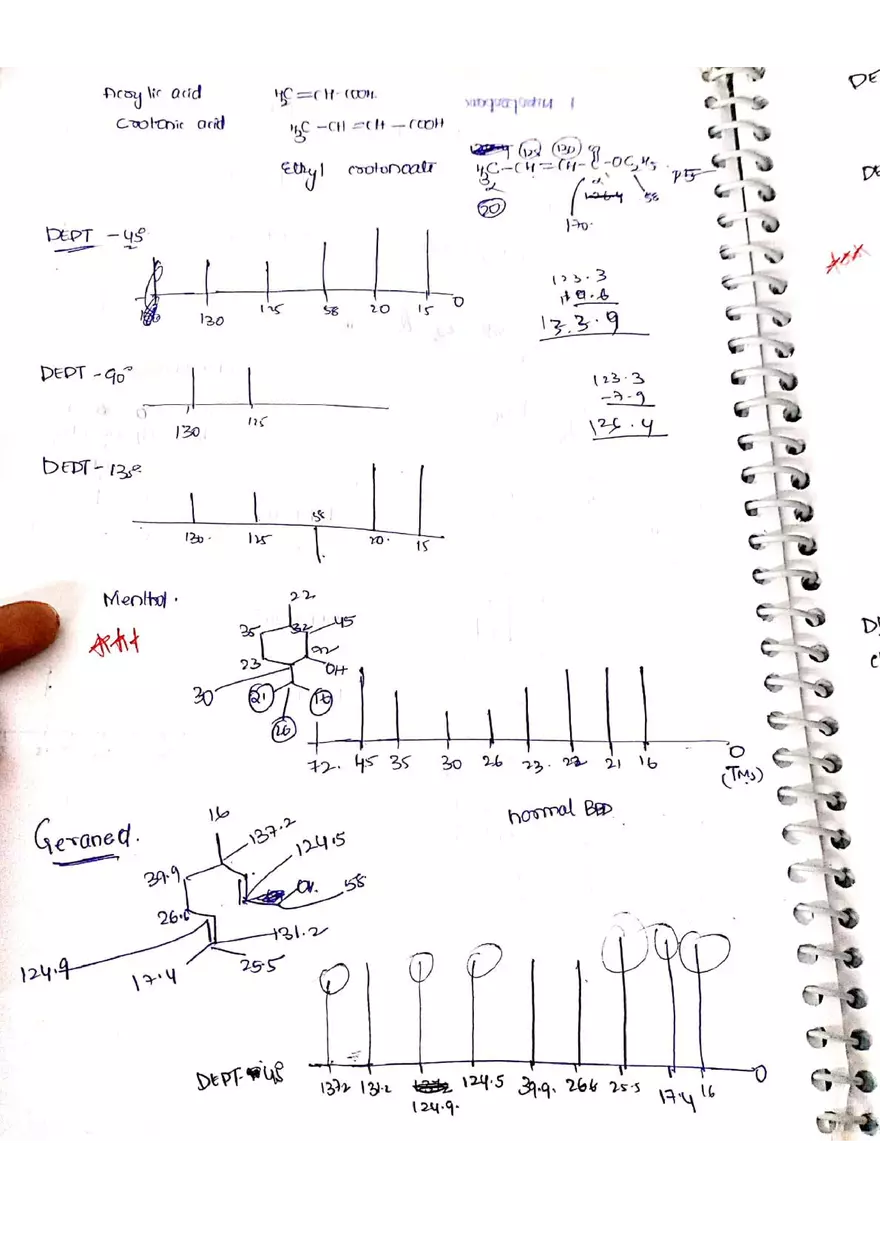 Acrylic acid H₂C=CH-COOH.
Crotonic acid H₃C-CH=CH-COOH
Ethyl crotonoate H₃C-CH=CH-C-OC₂H₅
125 130
20 170. 58
DEPT - 45°
130 125 58 20 15 0
123.3
133.9
DEPT - 90°
130 125
123.3
-7.9
125.4
DEPT - 135°
58
130. 125 20. 15
Menthol.
22
35 32 45
23 72
OH
30 21 16
26
72. 45 35 30 26 23. 22 21 16 0
(TMS)
normal BBD
16
137.2
Geraneol.
124.5
39.9
OH.
58
26.6
131.2
124.9
17.4 25.5
DEPT - 45
137.2 131.2 124.9. 124.5 39.9. 26.6 25.5 17.4 16 0
DE
DE